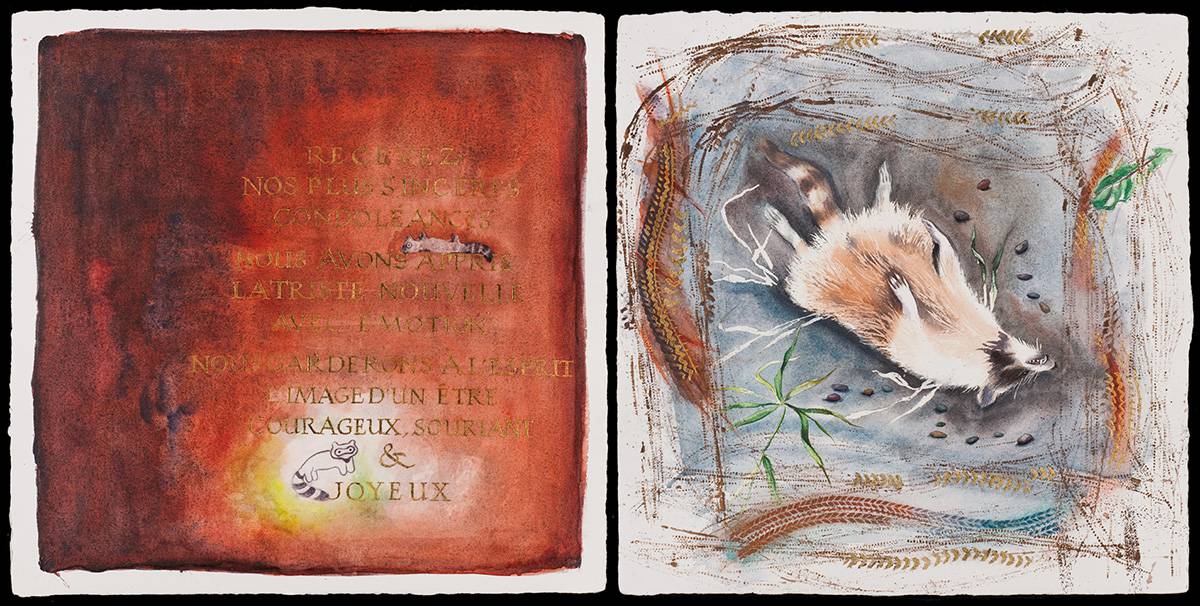 RECEVEZ
NOS PLUS SINCÈRES
CONDOLEANCES
NOUS AVONS APPRIS
LA TRISTE NOUVELLE
AVEC EMOTION
NOUS GARDERONS A L'ESPRIT
L'IMAGE D'UN ÊTRE
COURAGEUX, SOURIANT
&
JOYEUX